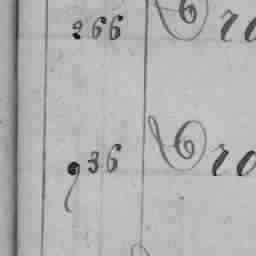 266 Cro
936 Cro